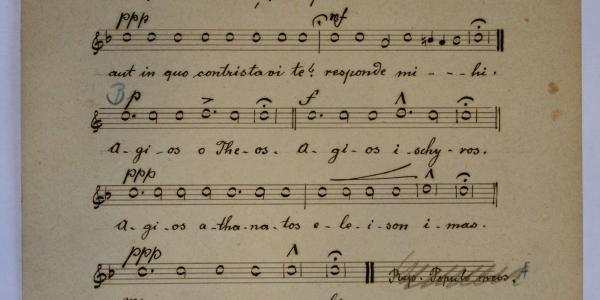 ppp mf
aut in quo contristavi te? responde mi - - - hi.
B p > f Λ
A-gi-os o The-os. A-gi-os i-schy-ros.
ppp Λ
A-gi-os a-tha-na-tos e-le-i-son i-mas.
ppp Λ
Resp. Popule meus. A